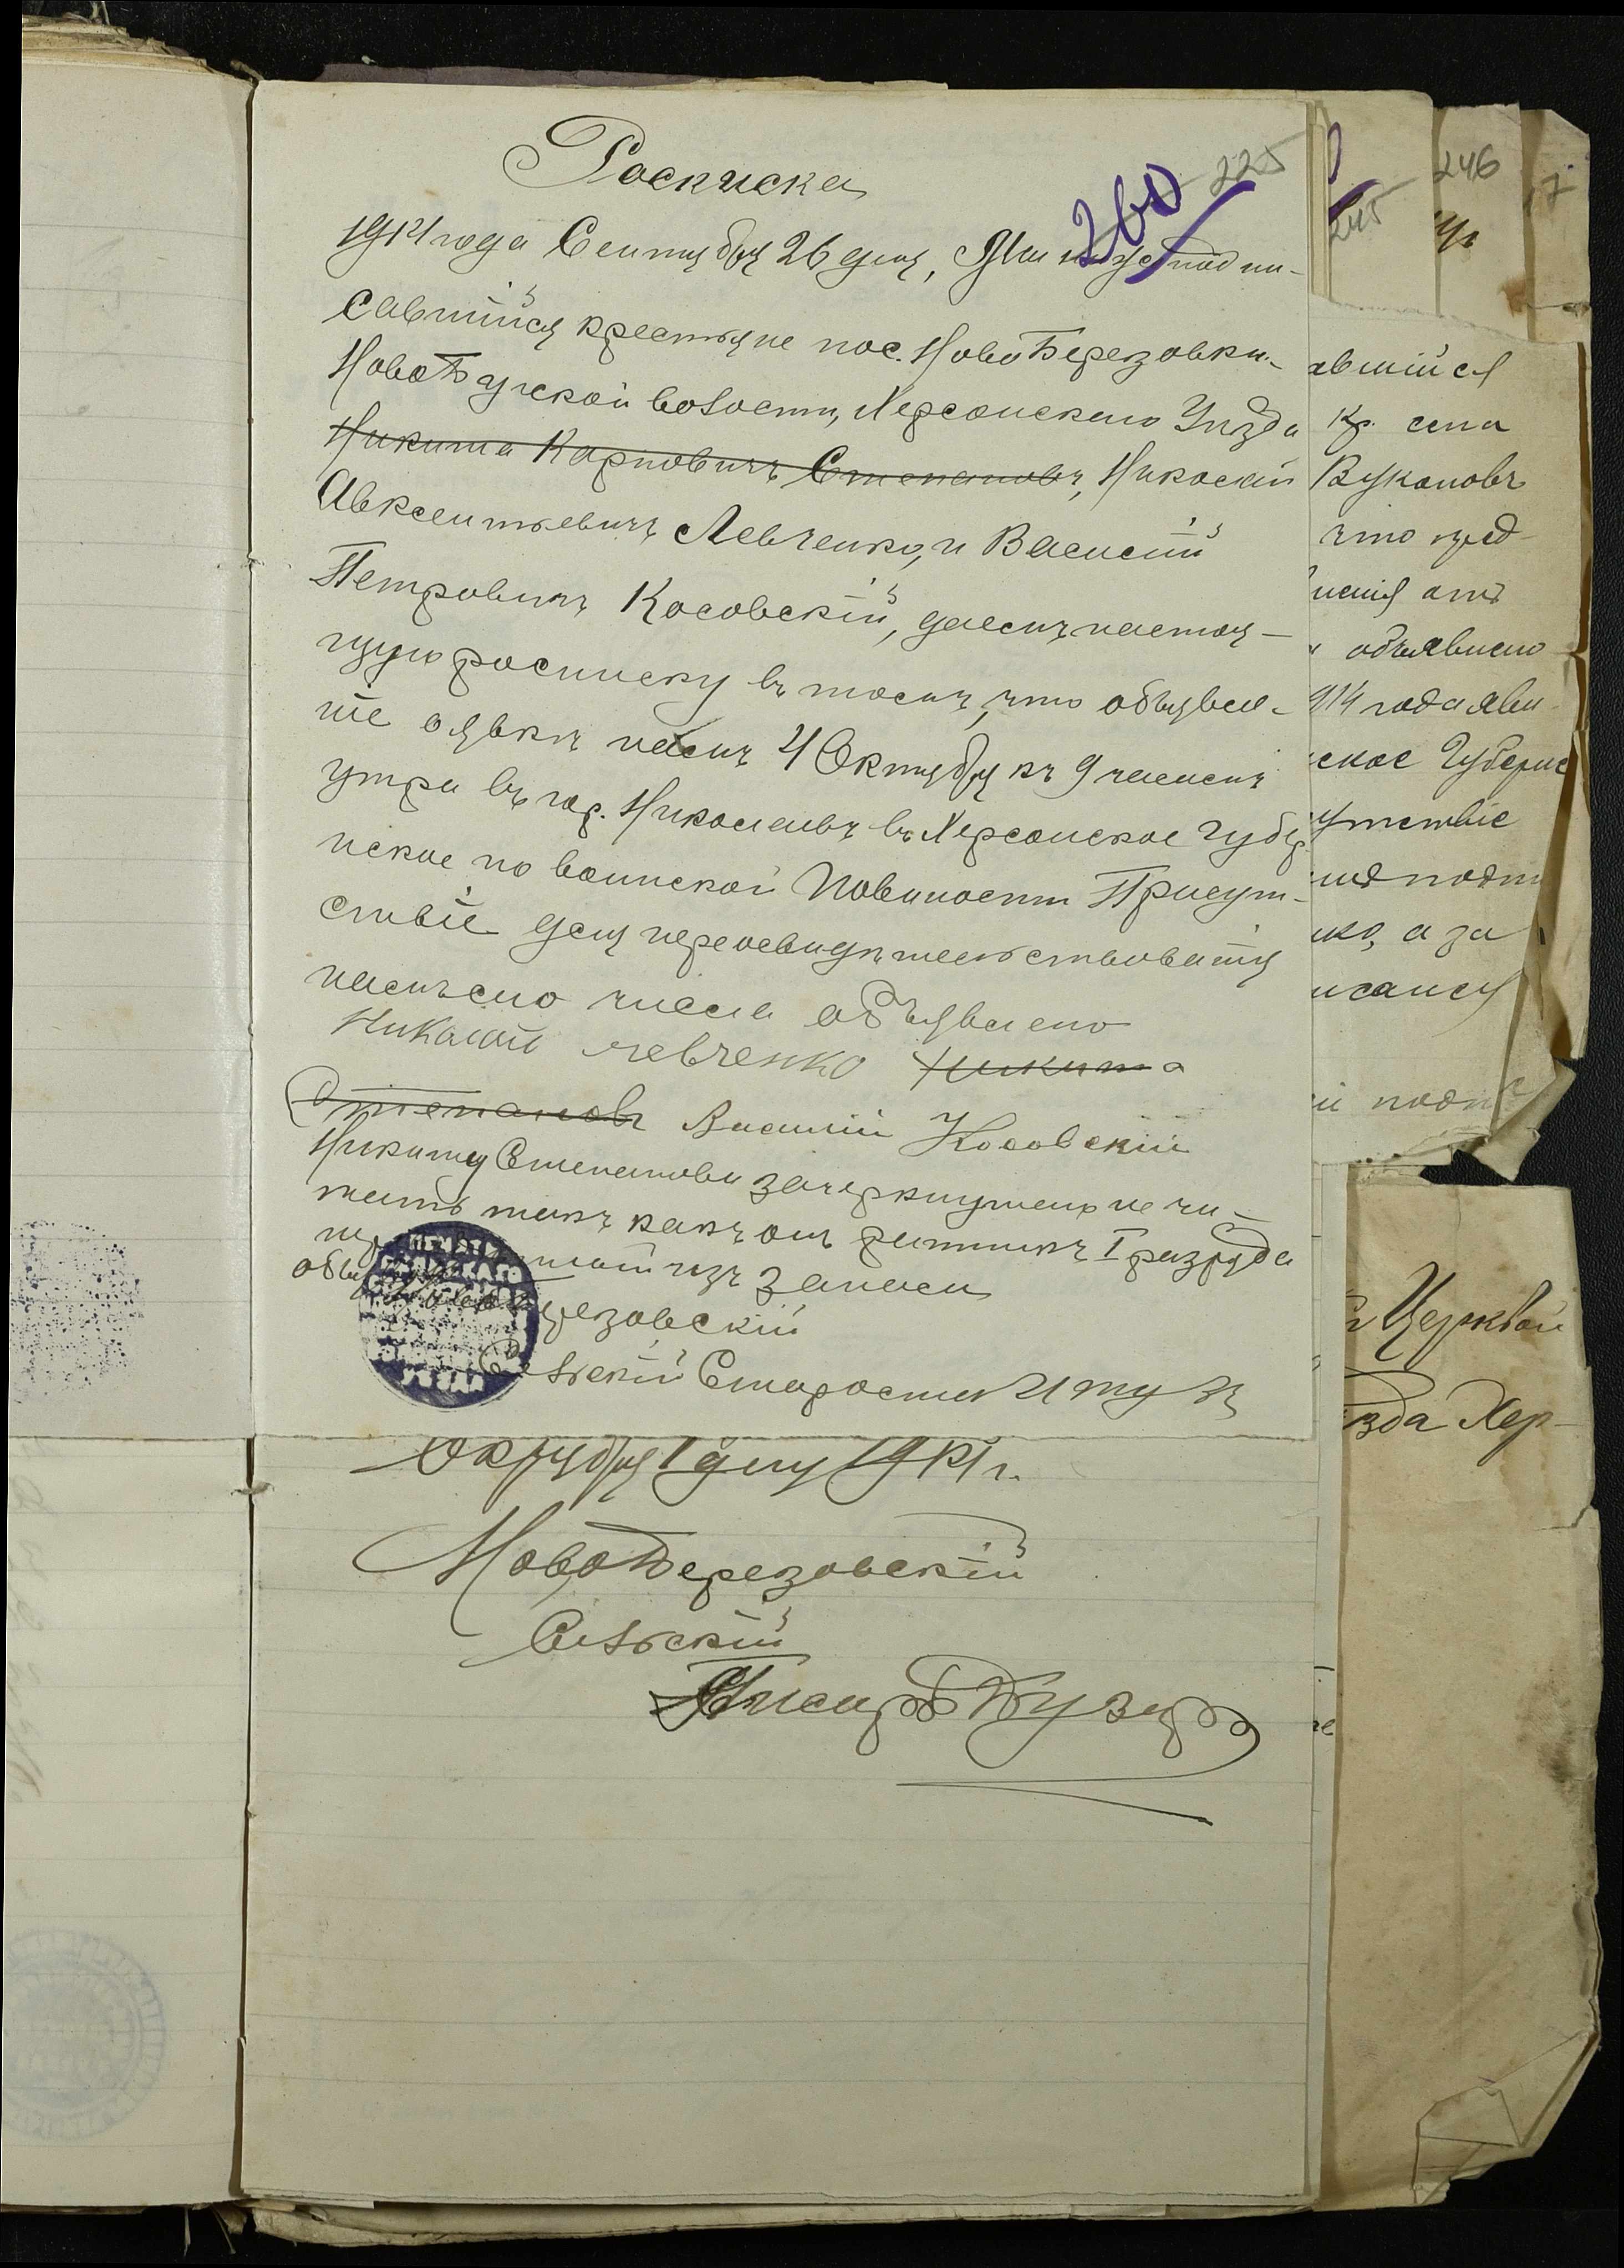 Росписка
260 225
1914 года Сентября 26 дня, Мы нижеподпи-
савшійся крестьяне пос. НовоБерезовки-
НовоБугской волости, Херсонскаго Уѣзда
Никита Карповичъ Степановъ, Николай
Авксентьевичъ Левченко, и Василій
Петровичъ Косовскій, даемъ настоя-
щую росписку въ томъ, что объявле-
ніе оявкѣ намъ 4 Октября къ 9 часамъ
утра въ гор. Николаевъ въ Херсонское Губер
нское по воинской Повиности Присут-
ствіе для переосвидѣтельствованія
насъ сего числа объявлено
Николай левченко Никита
Степановъ Василій Косовскій
Никита Степанова зачеркнутено не чи-
тать такъ какъ онъ ратникъ I разряда
изъ запаса
Сельскій Староста
Октября 1 дня 1914 г.
НовоБерезовскій
Сельскій
Писарь
246
245
7
вшійся
Кр. села
Вукановъ
что пред-
объявлено
914 года яви
ское Губерн
утствіе
ко, а за
и подпис
Церквой
зда Хер-